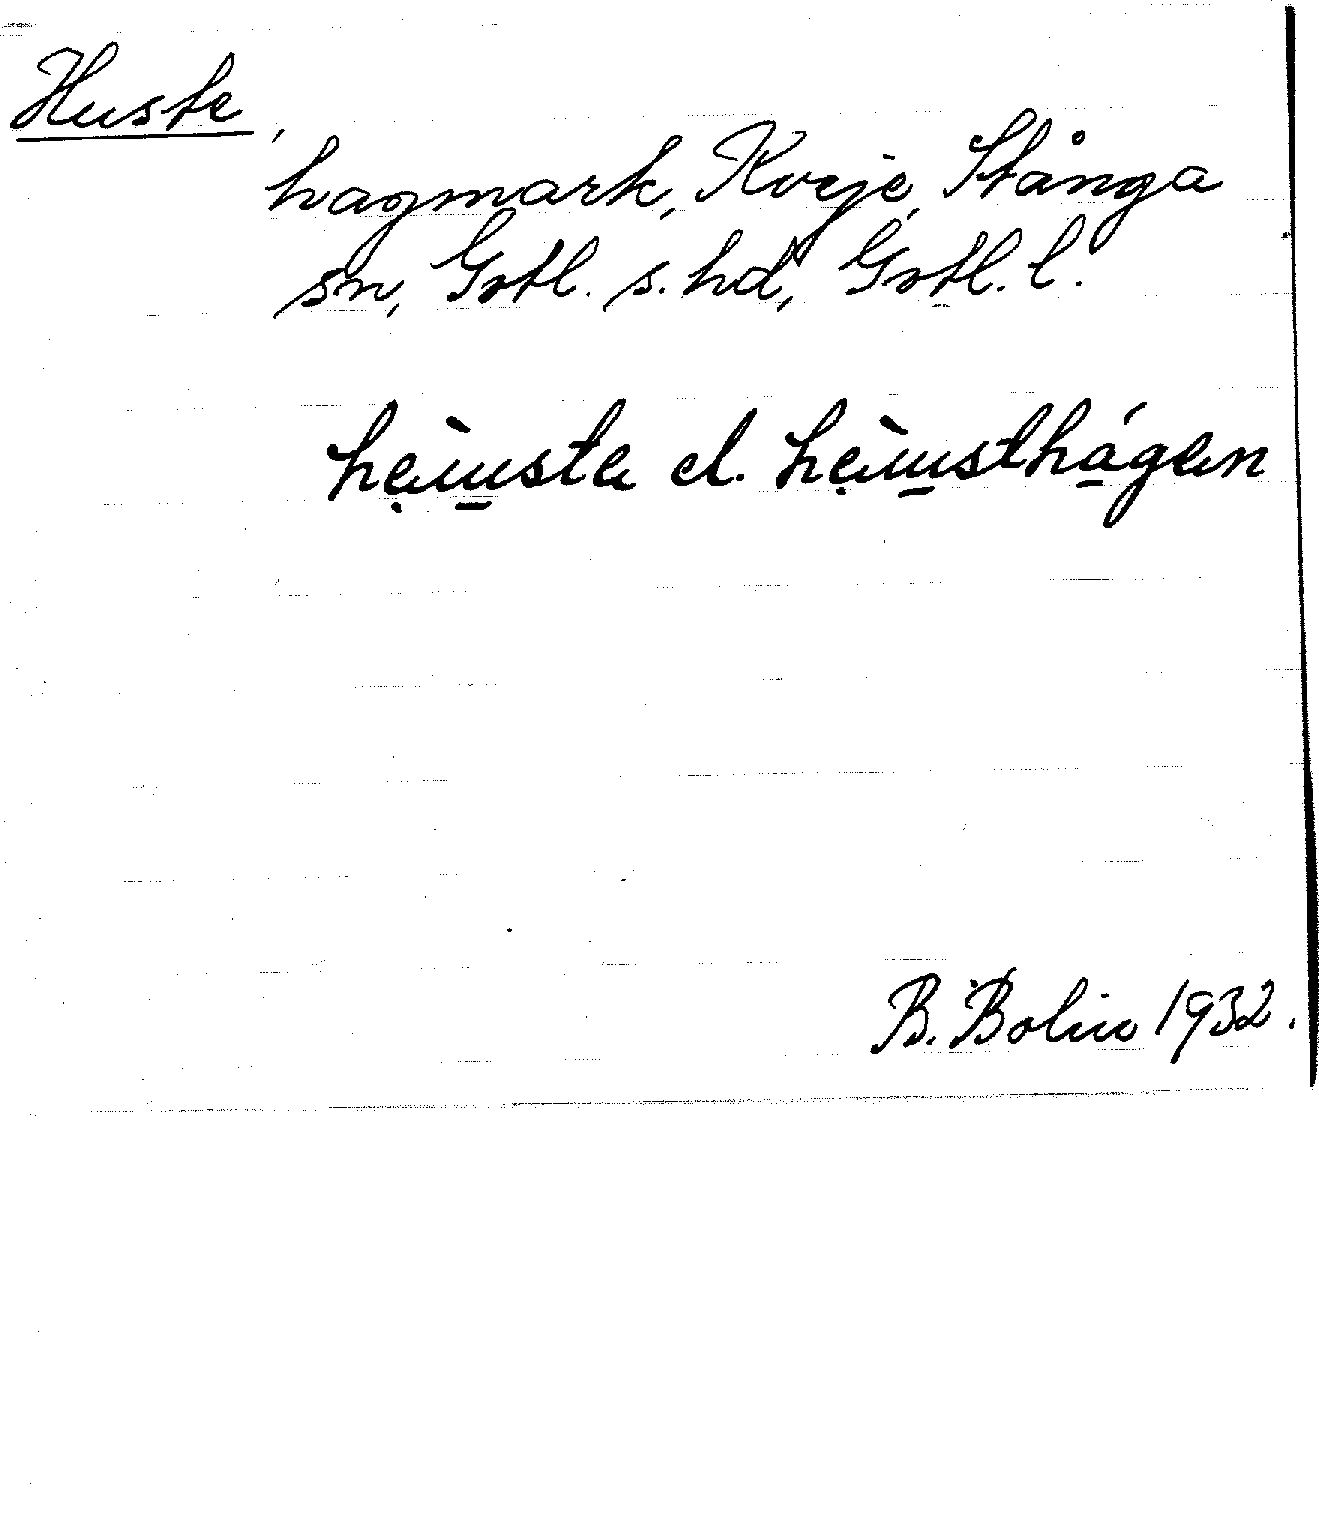 Huste,
hagmark, Kveje, Stånga
sn, Gotl. s. hd, Gotl. l.
hạ̀u̲sta el. hạ̀u̲sthá̲gan
B. Bolin 1932.